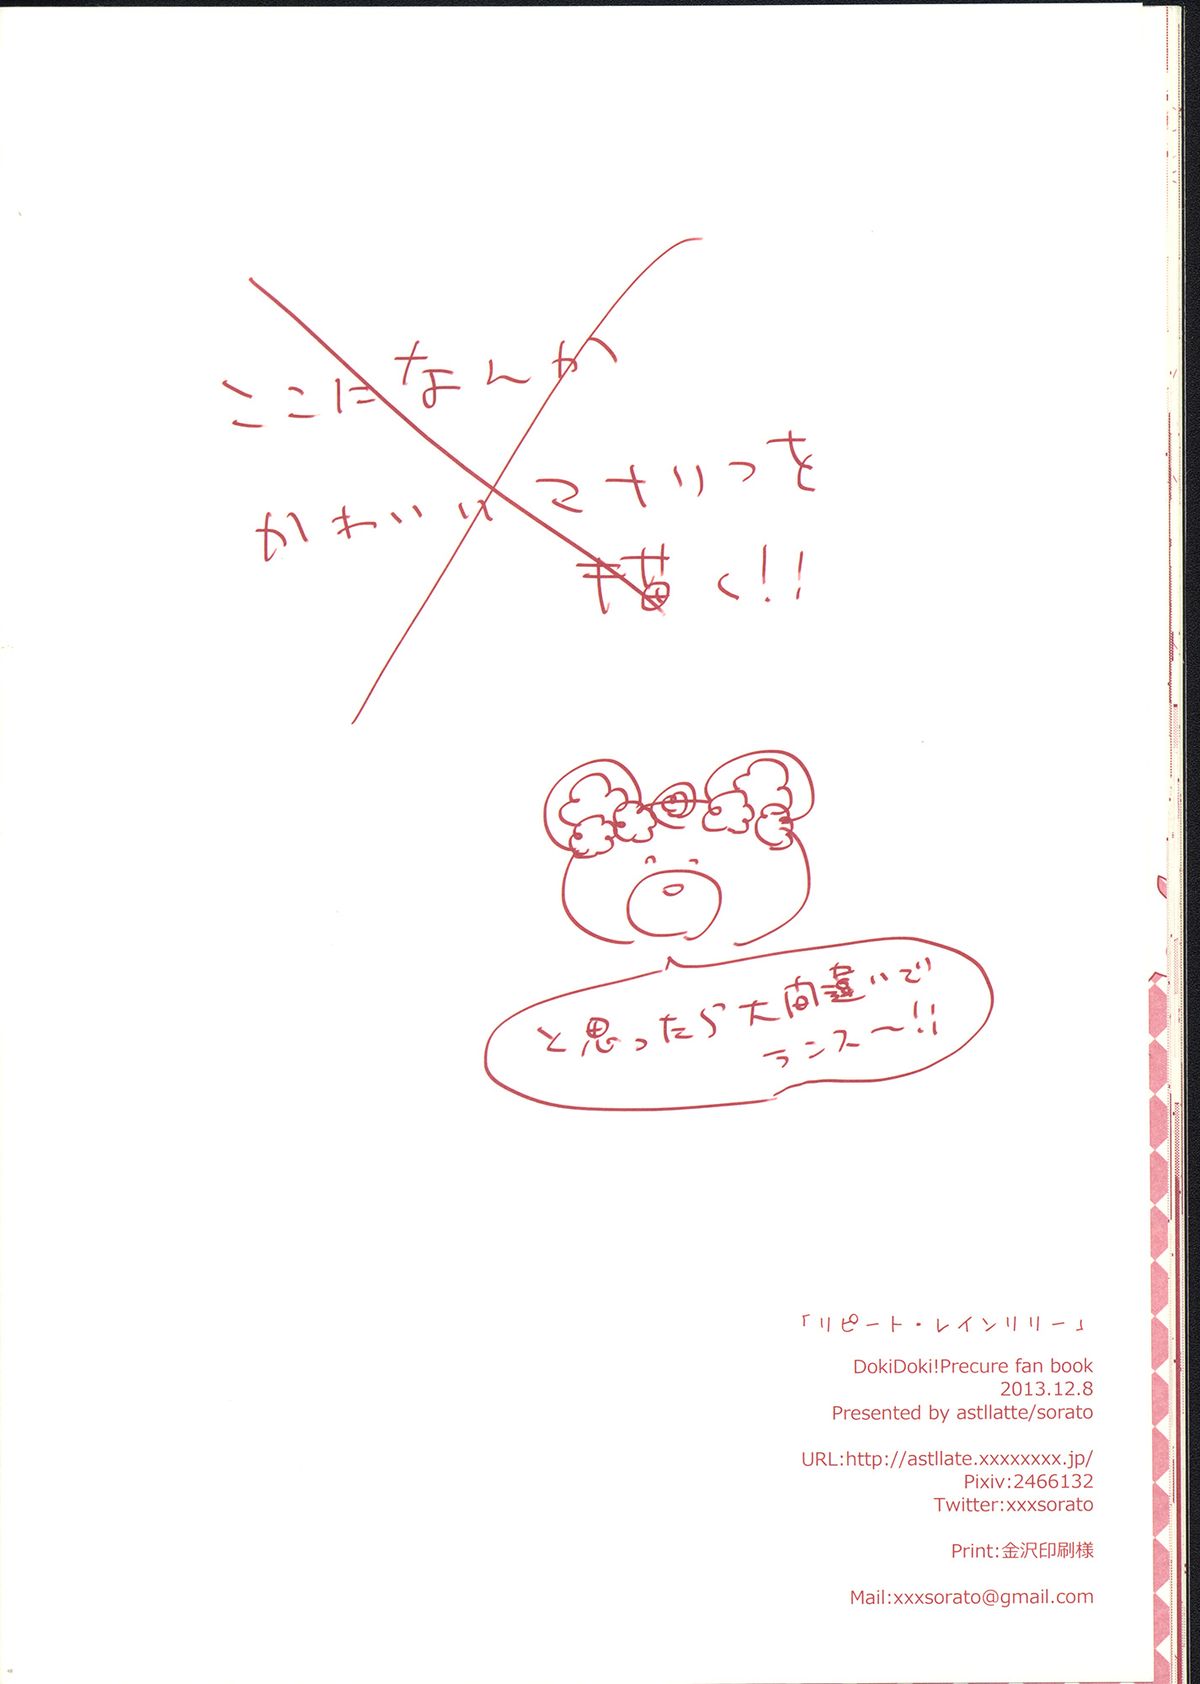 ここになんか
かわいいマナりつを
描く!!
と思ったら大間違いで
ランス〜!!
「リピート・レインリリー」
DokiDoki!Precure fan book
2013.12.8
Presented by astllatte/sorato
URL:http://astllate.xxxxxxxx.jp/
Pixiv:2466132
Twitter:xxxsorato
Print:金沢印刷様
Mail:xxxsorato@gmail.com